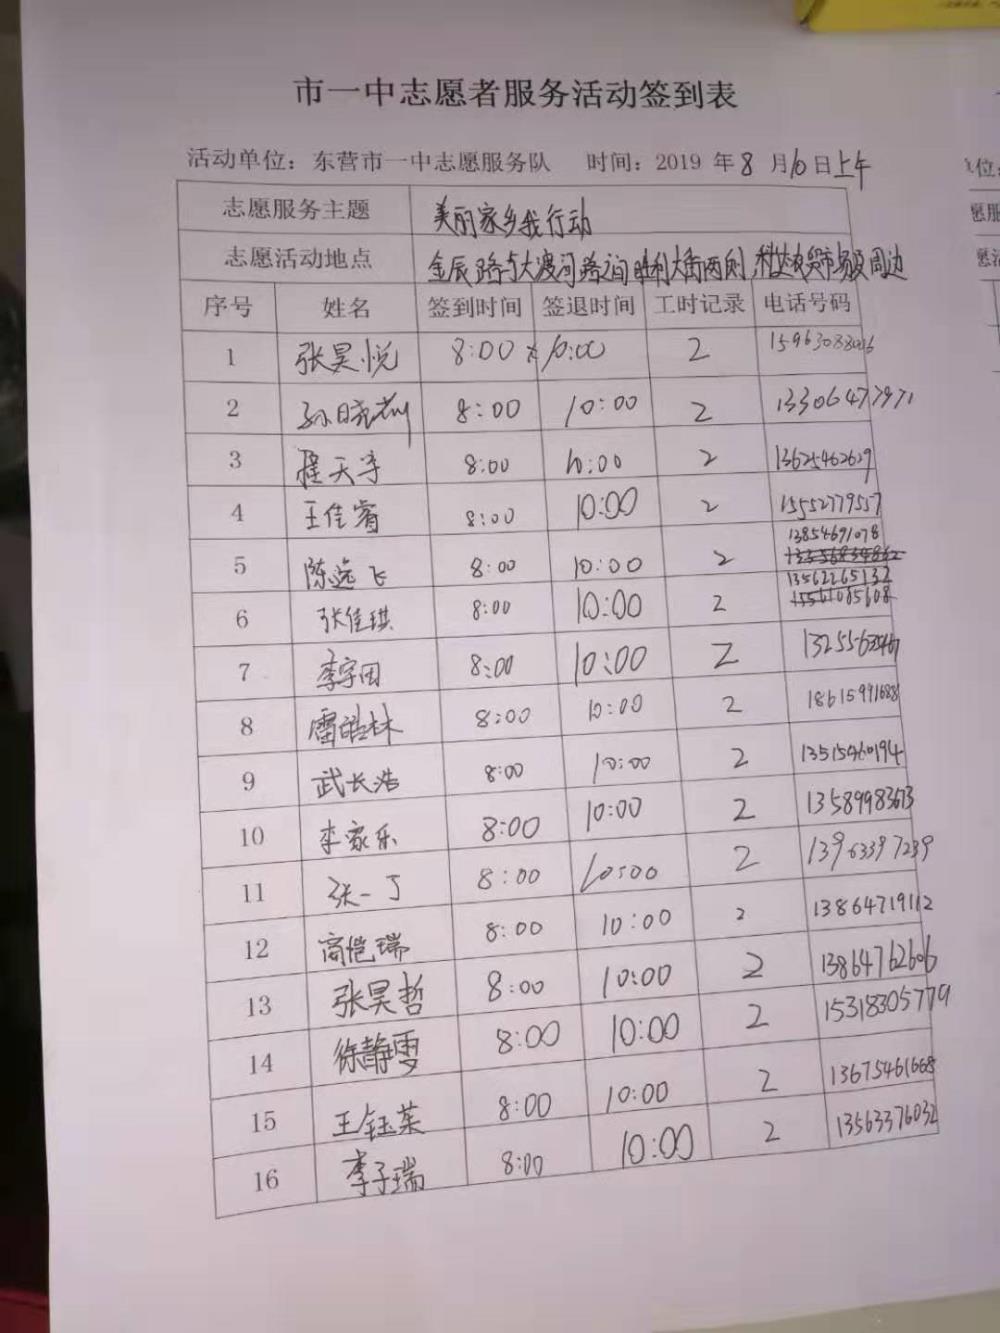 市一中志愿者服务活动签到表
活动单位：东营市一中志愿服务队 时间：2019 年 8 月 10 日上午
志愿服务主题 美丽家乡我行动
志愿活动地点 金辰路与大渡河路之间胜利大街两侧,科达农贸市场及周边
序号 姓名 签到时间 签退时间 工时记录 电话号码
1 张昊悦 8:00 10:00 2 15963088016
2 孙晓 8:00 10:00 2 13306477971
3 程天宇 8:00 10:00 2 13625462629
4 王佳睿 8:00 10:00 2 15552779557
5 陈远飞 8:00 10:00 2 13854691078
6 张佳琪 8:00 10:00 2 13562265132
7 李宇田 8:00 10:00 2
8 雷皓林 8:00 10:00 2 18615991688
9 武长浩 8:00 10:00 2 13515460194
10 李家乐 8:00 10:00 2 13589983673
11 张一丁 8:00 10:00 2 13963397239
12 高恺瑞 8:00 10:00 2 13864719112
13 张昊哲 8:00 10:00 2 13864762606
14 徐静雯 8:00 10:00 2 15318305779
15 王钰莱 8:00 10:00 2 13675461668
16 李子瑞 8:00 10:00 2 13563376032